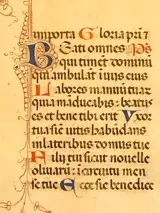 in porta Gloria pri ꝰ
Beati omnes Ps
qui timēt dominū
qui ambulāt ī viis eius
Labores manuū tuarū
quia māducabis: beatus
es et bene tibi erit Vxor
tua sicut vitis habūdans
in lateribus domus tue
Filij tui sicut nouelle
oliuarū: ī circuitu men
se tue Ecce sic benedice